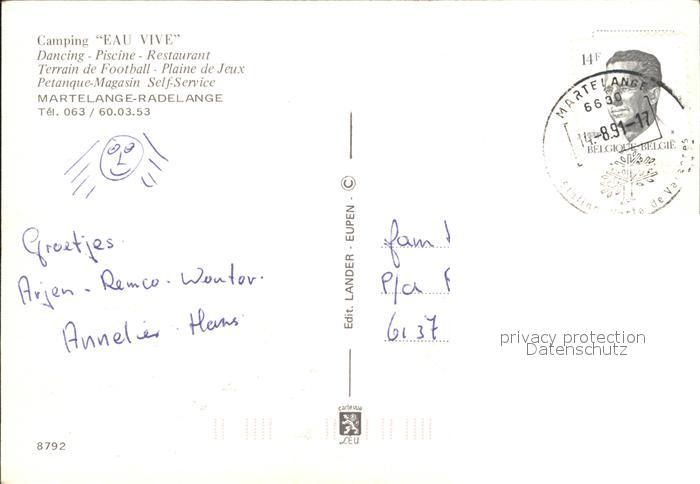 Camping "EAU VIVE"
Dancing - Piscine - Restaurant
Terrain de Football - Plaine de Jeux
Petanque-Magasin Self-Service
MARTELANGE-RADELANGE
Tél. 063 / 60.03.53
Groetjes.
Arjen - Remco. Wouter.
Annelies. Hans
8792
Edit. LANDER - EUPEN - ©
cartevue
14F
MARTELANGE
6630
14.-8.91-17
BELGIQUE BELGIË
Station Verte de
fam
P/a
6137
privacy protection
Datenschutz